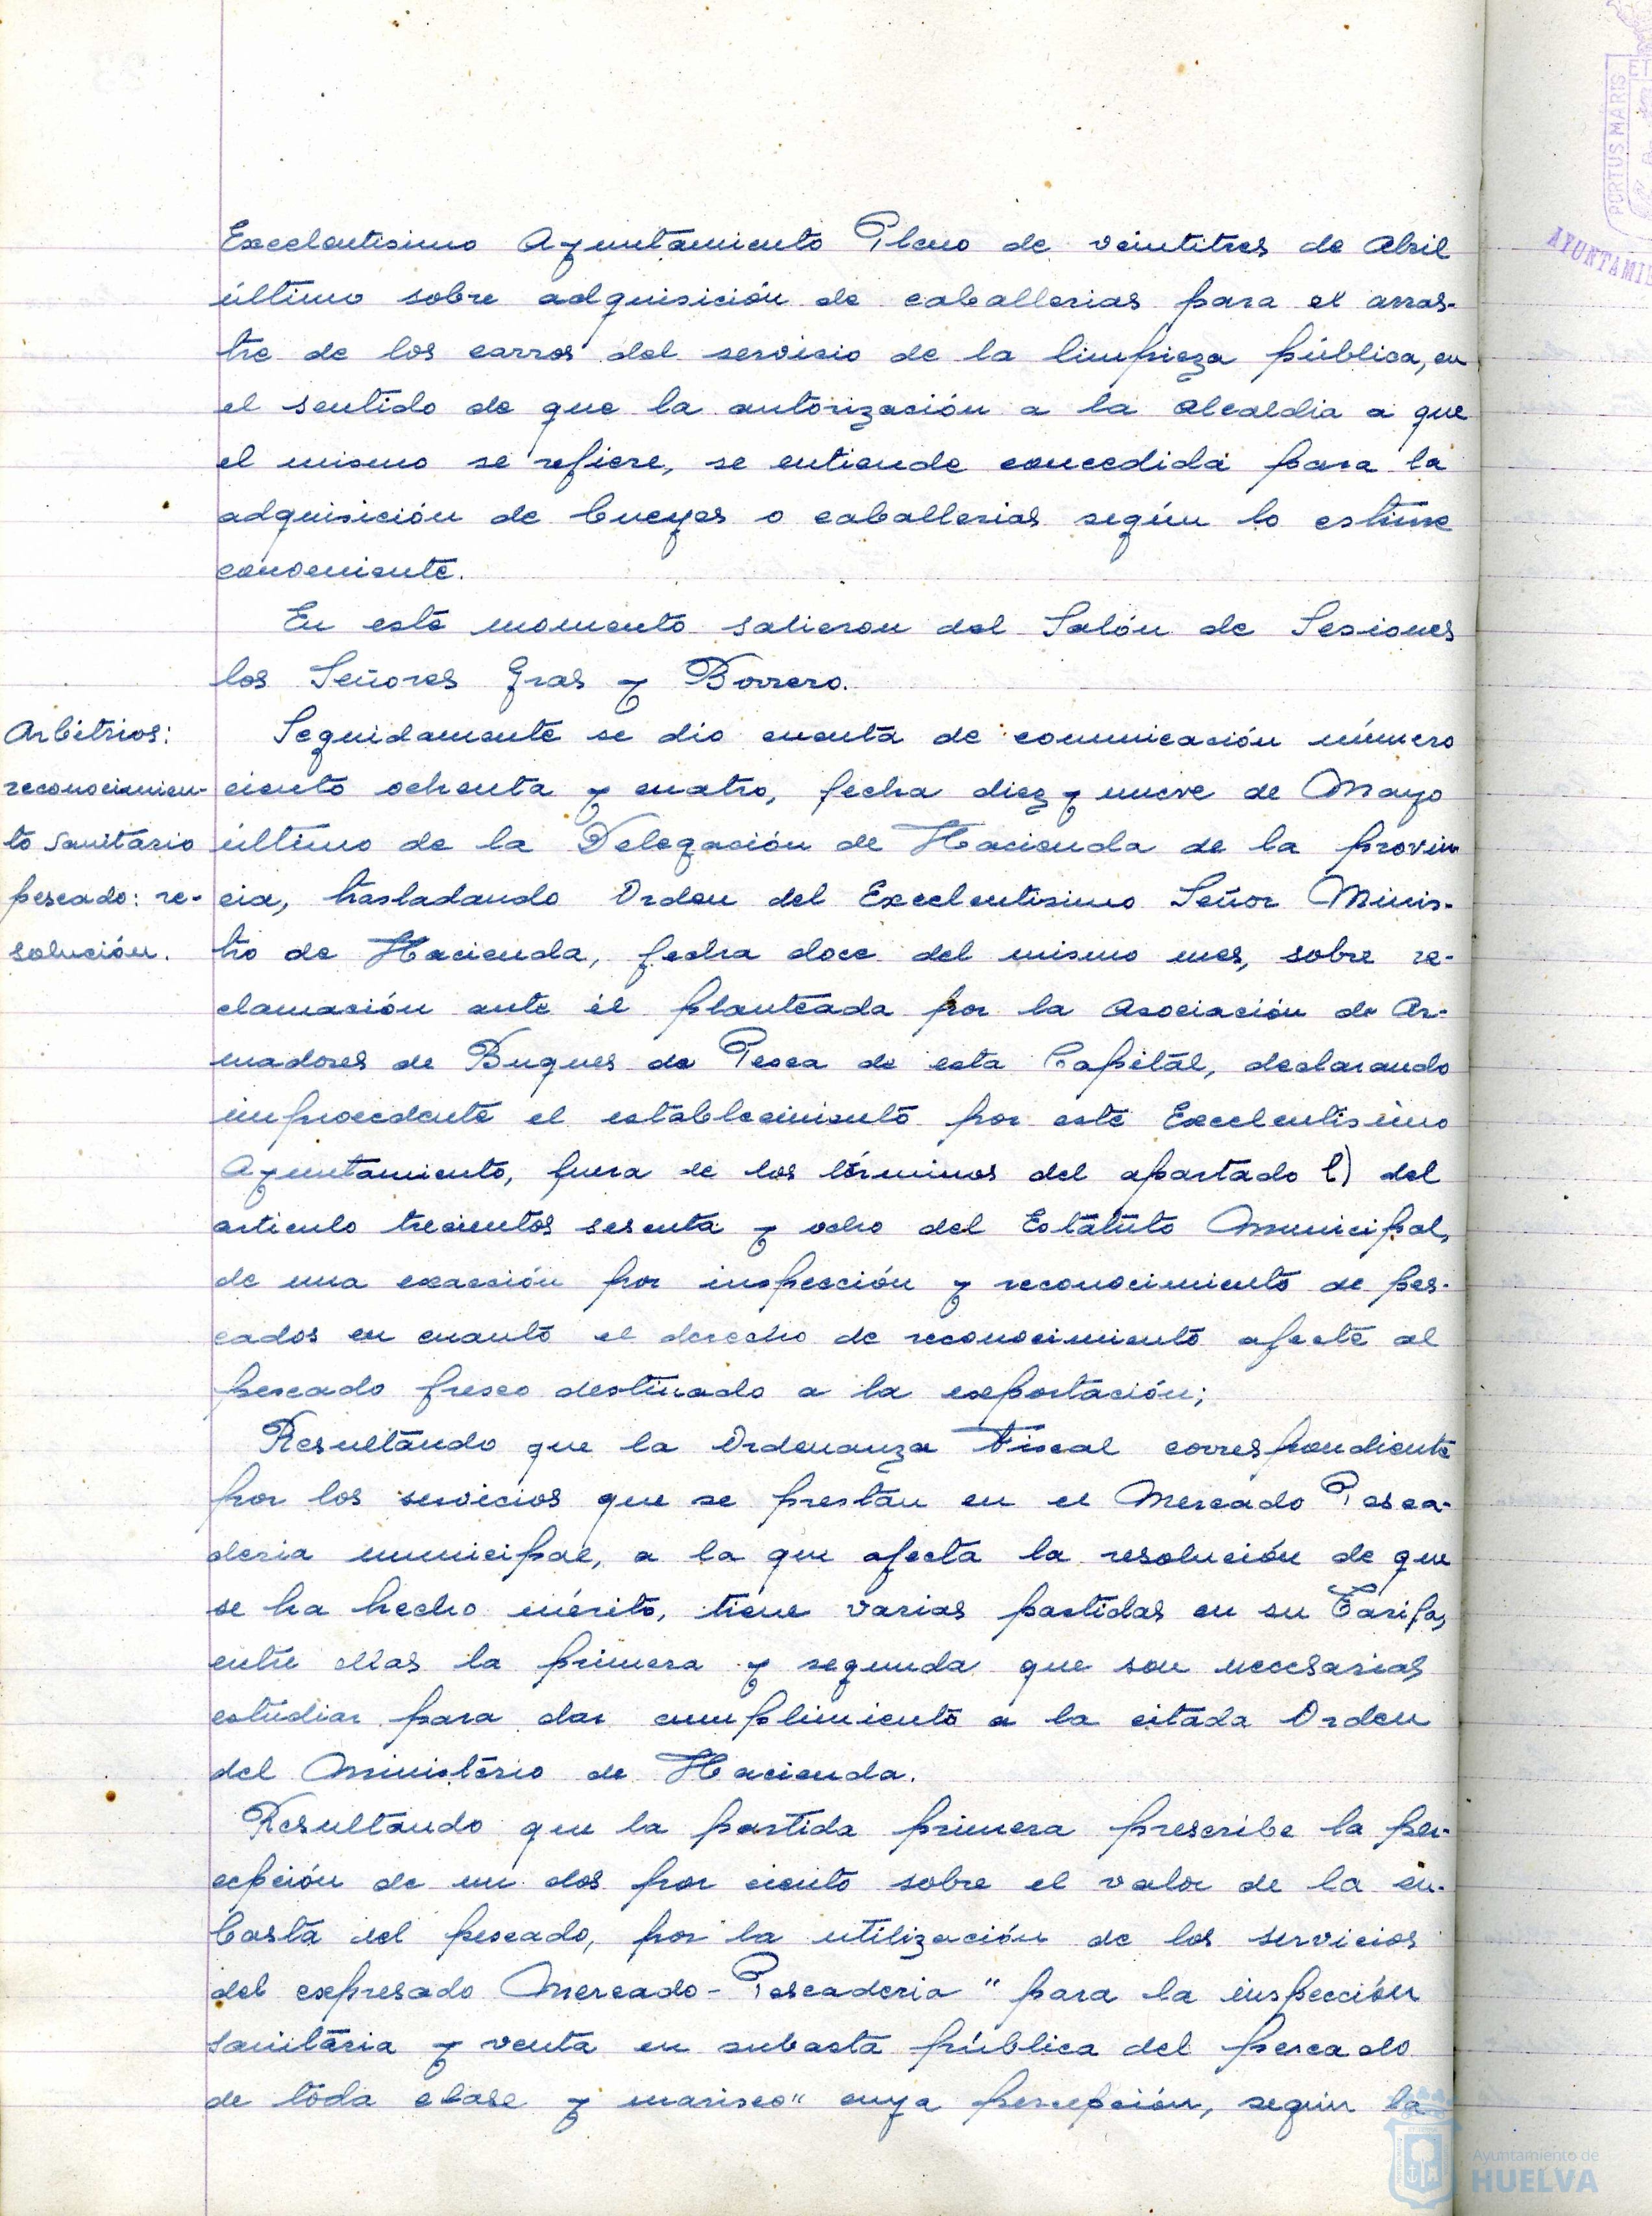 Excelentisimo Ayuntamiento Pleno de veintitres de Abril
último sobre adquisición de caballerias para el arras-
tre de los carros del servicio de la limpieza pública, en
el sentido de que la autorización a la Alcaldia a que
el mismo se refiere, se entiende concedida para la
adquisición de bueyes o caballerias según lo estime
conveniente.
En este momento salieron del Salón de Sesiones
los Señores Gras y Borrero.
Arbitrios:
reconocimien-
to sanitario
pescado: re-
solución.
Seguidamente se dio cuenta de comunicación número
ciento ochenta y cuatro, fecha diez y nueve de Mayo
último de la Delegación de Hacienda de la provin
cia, trasladando Orden del Excelentisimo Señor Minis-
tro de Hacienda, fecha doce del mismo mes, sobre re-
clamación ante él planteada por la Asociación de Ar-
madores de Buques de Pesca de esta Capital, declarando
improcedente el establecimiento por este Excelentisimo
Ayuntamiento, fuera de los términos del apartado l) del
articulo trecientos sesenta y ocho del Estatuto Municipal,
de una exacción por inspección y reconocimiento de pes-
cados en cuanto el derecho de reconocimiento afecte al
pescado fresco destinado a la exportación;
Resultando que la Ordenanza Fiscal correspondiente
por los servicios que se prestan en el Mercado Pesca-
deria municipal, a la que afecta la resolución de que
se ha hecho mérito, tiene varias partidas en su Tarifa,
entre ellas la primera y segunda que son necesarias
estudiar para dar cumplimiento a la citada Orden
del Ministerio de Hacienda.
Resultando que la partida primera prescribe la per-
cepción de un dos por ciento sobre el valor de la su-
basta del pescado, por la utilización de los servicios
del expresado Mercado-Pescaderia "para la inspección
sanitaria y venta en subasta pública del pescado
de toda clase y marisco" cuya percepción, según la
PORTUS MARIS
AYUNTAMIE
Ayuntamiento de
HUELVA